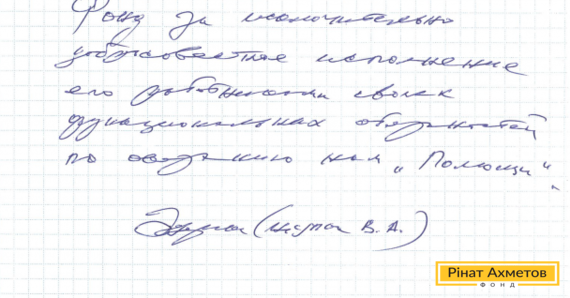 Фонд за исключительно
добросовестное исполнение
его работниками своих
функциональных обязанностей
по оказанию нам „Помощи“
В. А.)
Рінат Ахметов
ФОНД